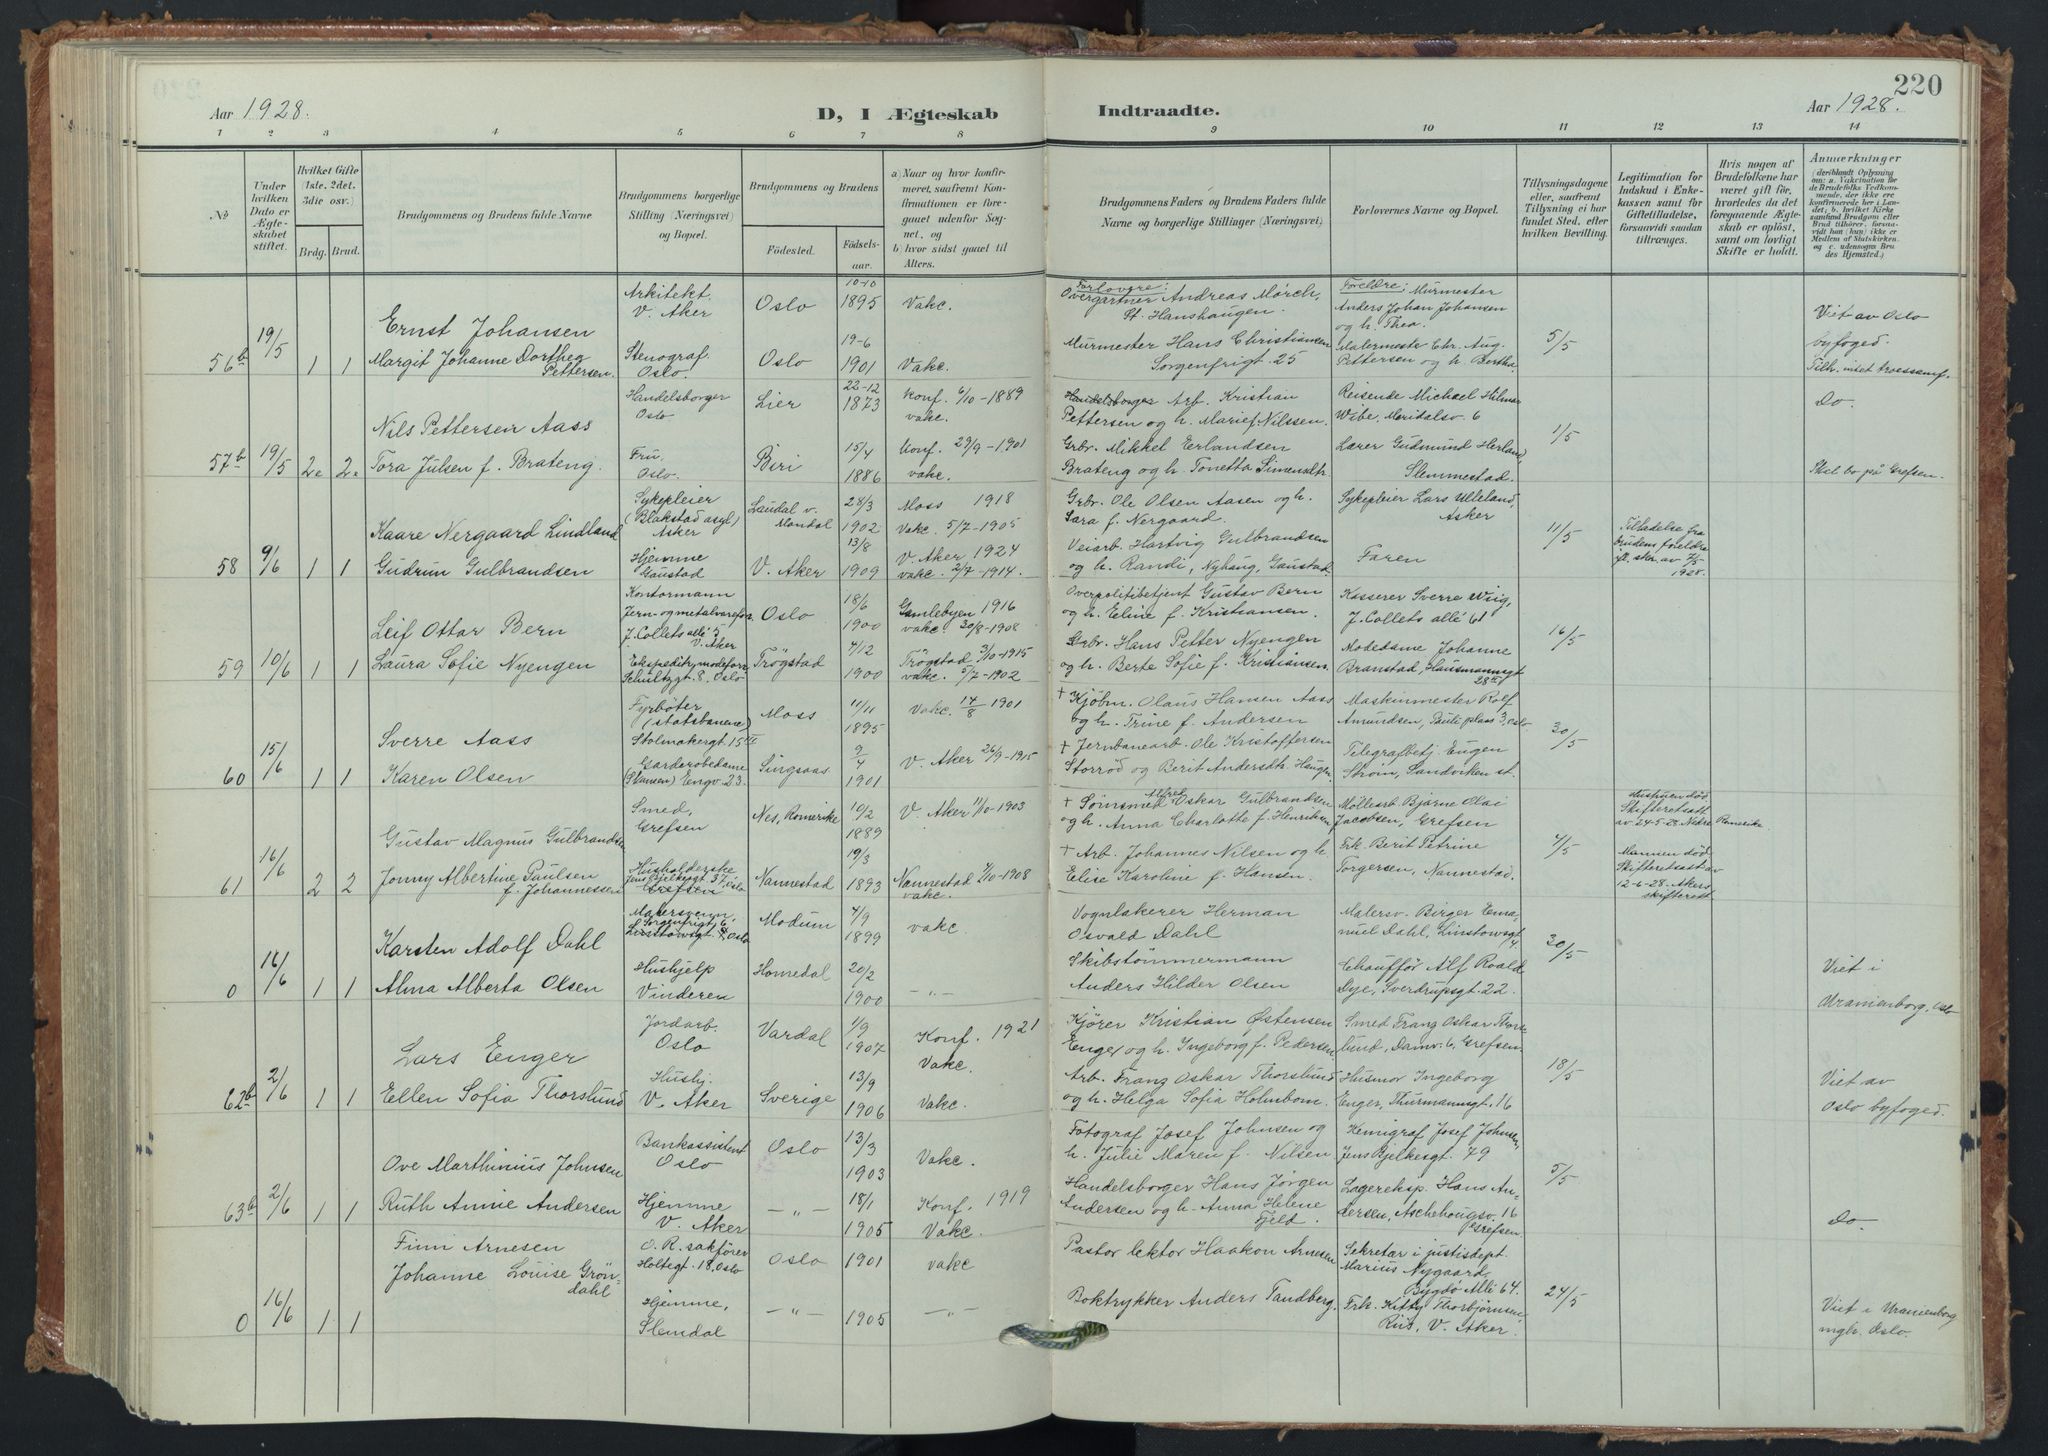 220
Aar 1928.
D, I Ægteskab
Indtraadte.
Aar 1928.
1 2 3 4 5 6 7 8 9 10 11 12 13 14
№
Under hvilken Dato er Ægteskabet stiftet.
Hvilket Gifte (1ste, 2det, 3die osv.)
Brdg. Brud.
Brudgommens og Brudens fulde Navne
Brudgommens borgerlige Stilling (Næringsvei) og Bopæl.
Brudgommens og Brudens
Fødested.
Fødselsaar.
a) Naar og hvor konfirmeret, saafremt Konfirmationen er foregaaet udenfor Sognet, og
b) hvor sidst gaaet til Alters.
Brudgommens Faders og Brudens Faders fulde Navne og borgerlige Stillinger (Næringsvei)
Forlovernes Navne og Bopæl.
Tillysningsdagene eller, saafremt Tillysning ei har fundet Sted, efter hvilken Bevilling.
Legitimation for Indskud i Enkekassen samt for Giftetilladelse, forsaavidt saadan tiltrænges.
Hvis nogen af Brudefolkene har været gift før, hvorledes da det foregaaende Ægteskab er opløst, samt om lovligt Skifte er holdt.
Anmerkninger
(deriblandt Oplysning om: a. Vakcination for de Brudefolks Vedkommende, der ikke ere konfirmerede her i Landet; b. hvilket Kirkesamfund Brudgom eller Brud tilhører, forsaavidt han (hun) ikke er Medlem af Statskirken og c. udensogns Brudes Hjemsted.)
56b 19/5 1 1
Ernst Johansen
Arkitekt. V. Aker
Oslo
10-10 1895
Vakc.
Forlovere:
Overgartner Andreas Mörch, St. Hanshaugen.
Foreldre: Murmester Anders Johan Johansen og h. Thea.
5/5
Viet av Oslo byfoged.
Margit Johanne Dorthea Pettersen.
Stenograf. Oslo
Oslo
19-6 1901
Vakc.
Murmester Hans Christiansen Sorgenfrigt. 25
Malermester Chr. Aug. Pettersen og h. Bertha.
Tilh. intet troessamf.
57b 19/5 2. 2.
Nils Pettersen Aass
Handelsborger Oslo
Lier
22-12 1873
Konf. 6/10-1889 vakc.
Handelsborger Arf. Kristian Pettersen og h. Marie f. Nilssen.
Reisende Michael Hilmar Wibe, Maridalsv. 6
1/5
Do.
Tora Julsen f. Brateng.
Fru. Oslo.
Biri
15/4 1886
Konf. 29/9-1901 vakc.
Grbr. Mikkel Erlandsen Brateng og h. Tonetta Simensdtr.
Lærer Gudmund Herland, Slemmestad.
Skal bo på Grefsen.
58 9/6 1 1
Kaare Nergaard Lindland
Sykepleier (Blakstad asyl) Asker
Laudal v. Mandal
28/3 1902
Moss 1918
Vakc. 5/7-1905
Grbr. Ole Olsen Aasen og h. Sara f. Nergaard.
Sykepleier Lars Ulleland, Asker
11/5
Tilladelse fra brudens foreldre ifl. skr. av 7/5 1928.
Gudrun Gulbrandsen
Hjemme Gaustad
V. Aker
13/8 1909
V. Aker 1924
vakc. 2/7-1914.
Veiarb. Hartvig Gulbrandsen og h. Randi, Nyhaug, Gaustad.
Faren
59 10/6 1 1
Leif Ottar Bern
Kontormann Jern- og metalvareforr. J. Collets allé 5 V. Aker
Oslo
18/6 1900
Gamlebyen 1916
vakc. 30/8-1908
Overpolitibetjent Gustav Bern og h. Eline f. Kristiansen.
Kasserer Sverre Wiig, J. Collets allé 61
16/5
Laura Sofie Nyengen
Ekspeditr. modeforr. Schultzgt. 8, Oslo
Trögstad
4/12 1900
Trögstad 3/10-1915
vakc. 5/7-1902
Grbr. Hans Petter Nyengen og h. Berte Sofie f. Kristiansen.
Modedame Johanne Branstad, Hausmannsgt 28III
60 15/6 1 1
Sverre Aass
Fyrböter (statsbanene) Stolmakergt. 15III
Moss
11/11 1895
Vakc. 14/8 1901
+ Kjöbm. Olaus Hansen Aass og h. Trine f. Andersen
Maskinmester Rolf Amundsen, Pauli plass 3, oslo
30/5
Karen Olsen
Garderobedame (Skansen) Engv. 23.
Singsaas
9/4 1901
V. Aker 26/9-1915
+ Jernbanearb. Ole Kristoffersen Storröd og Berit Andersdtr. Haugen
Telegrafbetj. Eugen Ström, Sandviken st.
61 16/6 2 2
Gustav Magnus Gulbrandsen
Smed, Grefsen
Nes, Romerike
10/2 1889
V. Aker 11/10-1903
+ Sömsmed Alfred Oskar Gulbrandsen og h. Anna Charlotte f. Henriksen
Möllearb Bjarne Olai Jacobsen, Grefsen
4/5
Hustruen död Skifteretsatt av 24-5-28 Nedre Romerike
Jonny Albertine Paulsen f. Johannessen
Husholderske Jens Bjelkesgt 37, oslo Grefsen
Nannestad
19/3 1893
Nannestad 4/10-1908
vakc.
+ Arb. Johannes Nilsen og h. Elise Karoline f. Hansen.
Frk. Berit Petrine Torgersen, Nannestad.
Mannen död Skifteretsatt av 12-6-28. Akers skifterett.
0 16/6 1 1
Karsten Adolf Dahl
Malersvenn, Sorgenfrigt 6 Linstowsgt 4, Oslo
Modum
4/9 1899
vakc.
Vognlakerer Herman Osvald Dahl
Malersv. Birger Emanuel Dahl, Linstowsgt 4
30/5
Alma Alberta Olsen
Hushjelp Vinderen
Homedal
20/2 1900
- " -
Skibstömmermann Anders Hilder Olsen
Chauffør Alf Roald Dye, Sverdrupsgt. 22.
Viet i Uranienborg, oslo
62b 2/6 1 1
Lars Enger
Jordarb. Oslo
Vardal
1/9 1907
Konf. 1921
Vakc.
Kjörer Kristian Østensen Enger og h. Ingeborg f. Pedersen
Smed Franz Oskar Thorslund, Damv. 6, Grefsen.
18/5
Ellen Sofia Thorslund
Hushj. V. Aker
Sverige
13/9 1906
Vakc.
Arb. Franz Oskar Thorslund og h. Helga Sofia Holmbom.
Husmor Ingeborg Enger, Thurmannsgt. 16
Viet av Oslo byfoged.
63b 2/6 1 1
Ove Marthinius Johnsen
Bankassistent Oslo
Oslo
13/3 1903
Vakc.
Fotograf Josef Johnsen og h. Julie Maren f. Nilsen
Kemigraf Josef Johnsen, Jens Bjelkesgt. 79
5/5
Ruth Annie Andersen
Hjemme V. Aker
- " -
18/1 1905
Konf. 1919
Vakc.
Handelsborger Hans Jörgen Andersen og h. Anna Helene Fjeld.
Lagereksp. Hans Andersen, Aschehougsv. 16 Grefsen
Do.
0 16/6 1 1
Finn Arnesen
O. R. sakförer Holtegt. 18, Oslo
Oslo
1901
vakc
Pastor lektor Haakon Arnesen
Sekretær i justisdept. Marius Nygaard, Bygdö Allé 64.
24/5
Johanne Louise Gröndahl
Hjemme, Slemdal
- " -
1905
- " -
Boktrykker Anders Tandberg.
Frk. Kitty Thorbjörnsen Riis, V. Aker.
Viet i Uranienborg mgh. Oslo.